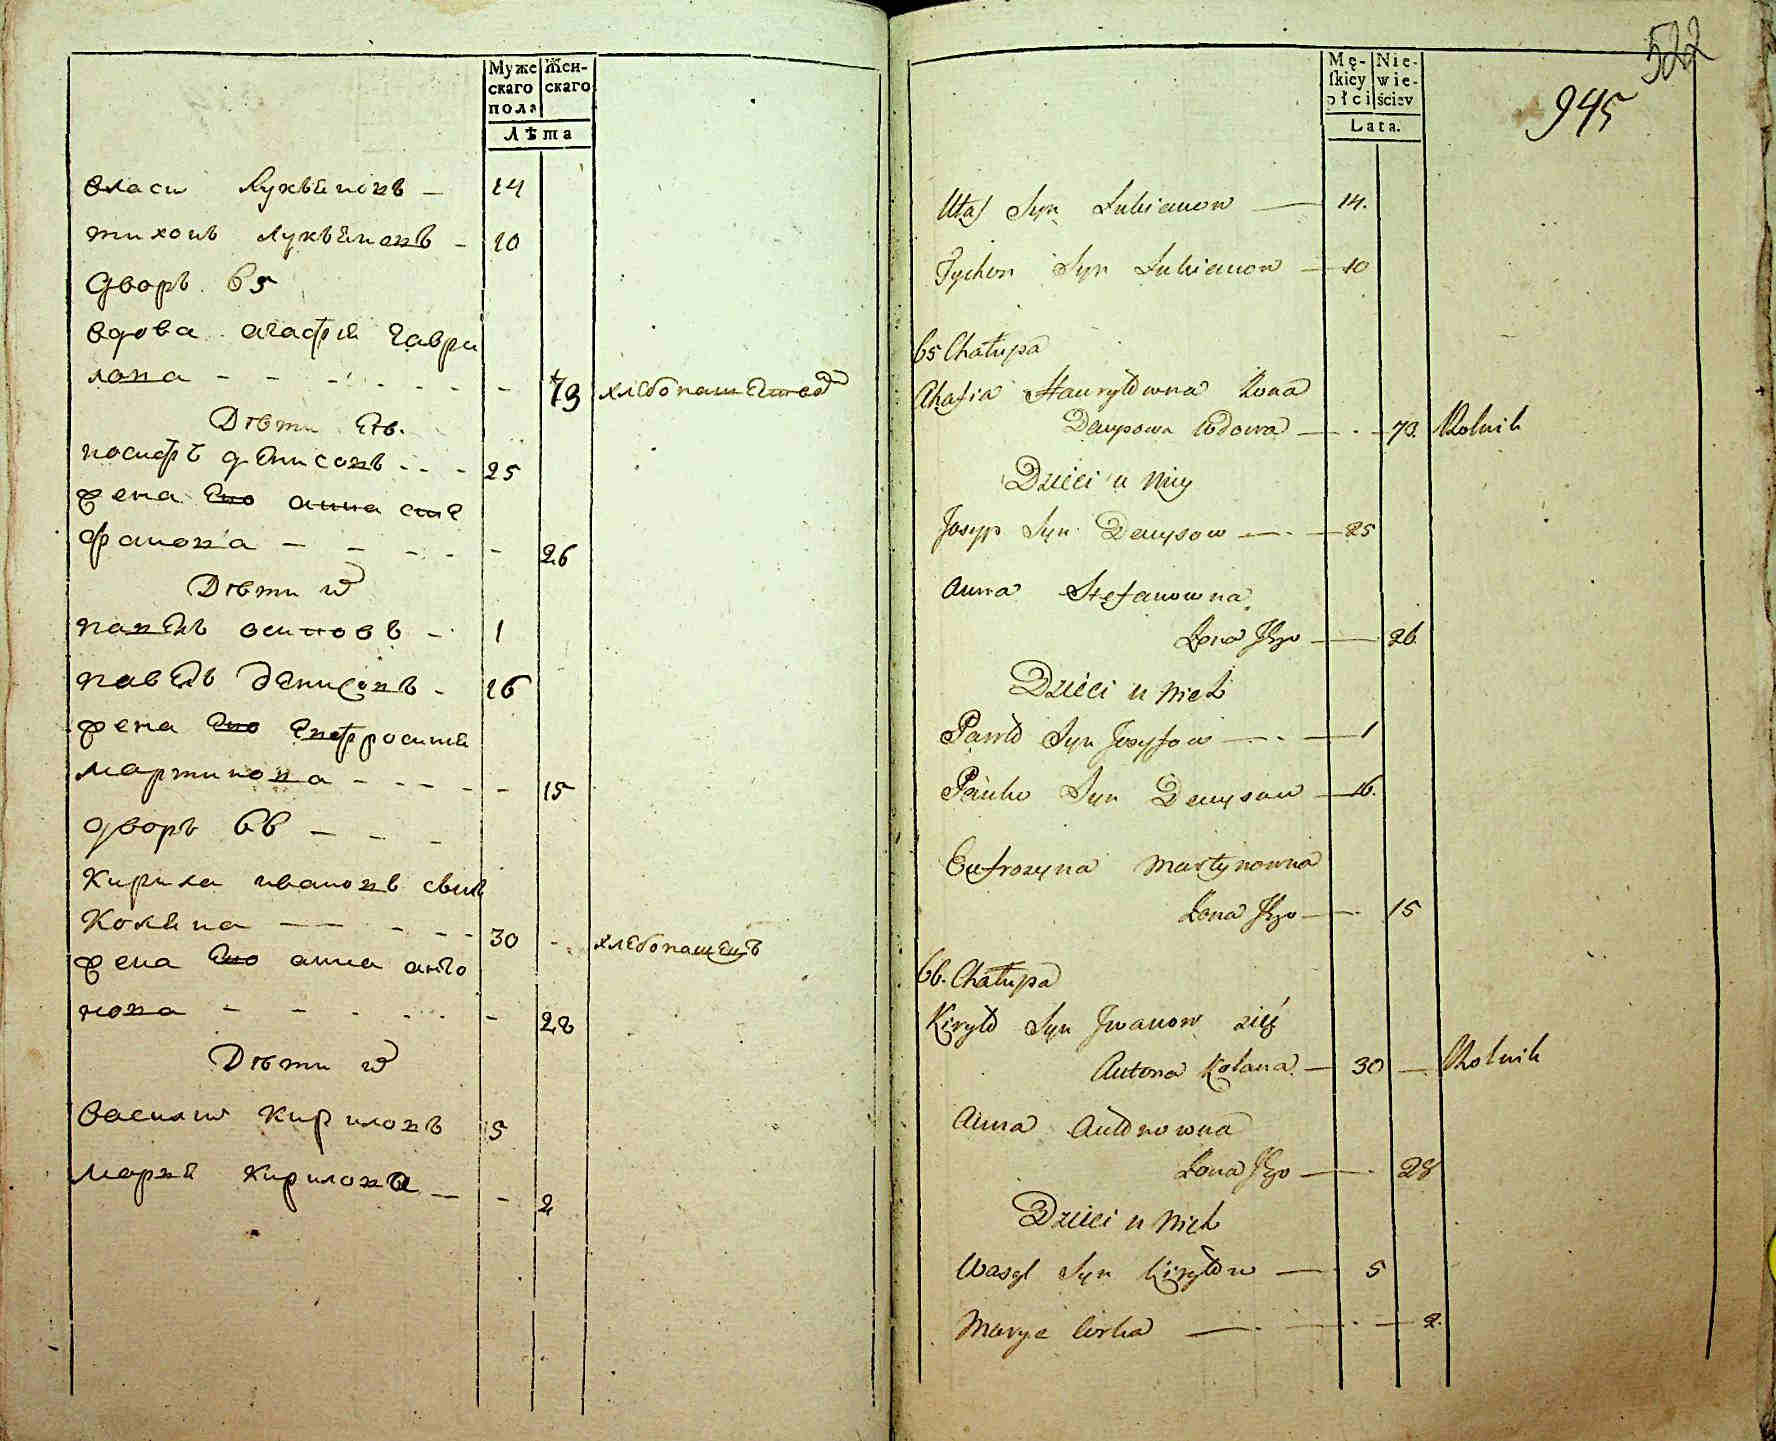 Муже Жен-
скаго скаго
пола
Лѣта
власи Лукъянонъ — 14
тихонъ Лукъянонъ - 10
Дворъ 65
Вдова агафія Гаври
лона - - - - - - 73 хлебопашецтво
Дѣти Ея.
иосифъ денисонъ - - - 25
жена Его анна сте
фанона - - - - - 26
Дѣти их
павелъ осиповъ - 1
павелъ денисонъ - 16
жена Его Енфросинія
мартинона - - - - - 15
дворъ 66 - - -
Кирила иванонъ
Коляна — - - - 30 - хлебопашецъ
жена Его анна анто
нона - - - - - 28
Дѣти их
Василии Кирилонъ 5
Марія Кирилона — - 2
522
945
Mę- Nie-
skiey wie-
płci ściey
Lata.
Ułas Syn Lukianow — 14.
Tychon Syn Lukianow — 10
65 Chałupa
Ahafia Hauryłowna Żona
Denysowa Wdowa — - - 73. Rolnik
Dzieci u Niey
Josyp Syn Denysow — - — 25
Anna Stefanowna
Żona Jego — 26
Dzieci u Nich
Pawło Syn Josyfow — - — 1
Pawło Syn Denysow — 16.
Eufrozyna Martynowna
Żona Jego — - 15
66. Chałupa
Kiryło Syn Jwanow zięć
Antona Kolana — 30 — Rolnik
Anna Antonowna
Żona Jego — - 28
Dzieci u Nich
Wasyl Syn Kiryłow — 5
Marya Corka — - — - — 2.